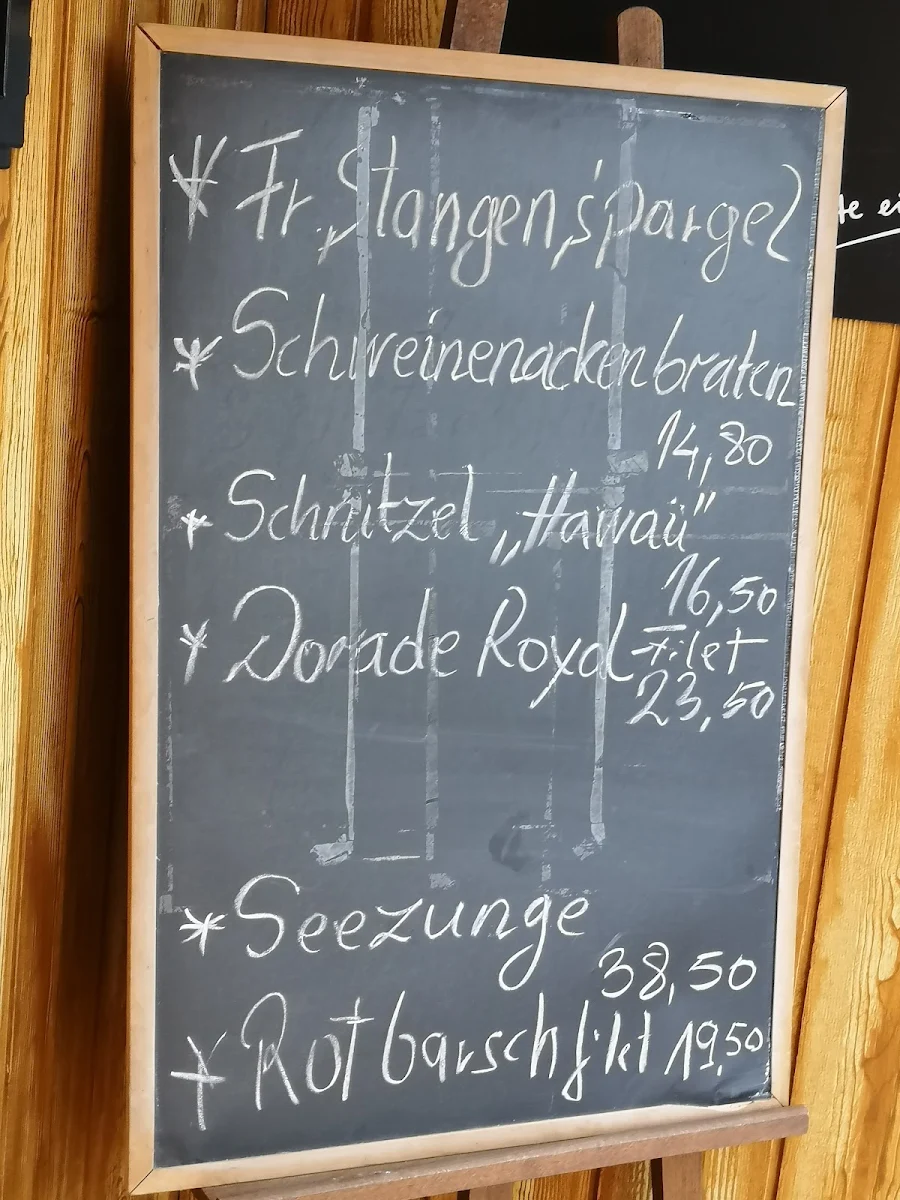 * Fr. Stangen,spargel
* Schweinenackenbraten
14,80
* Schnitzel „Hawaii"
16,50
* Dorade Royal Filet
23,50
* Seezunge
38,50
* Rotbarschfilet 19,50